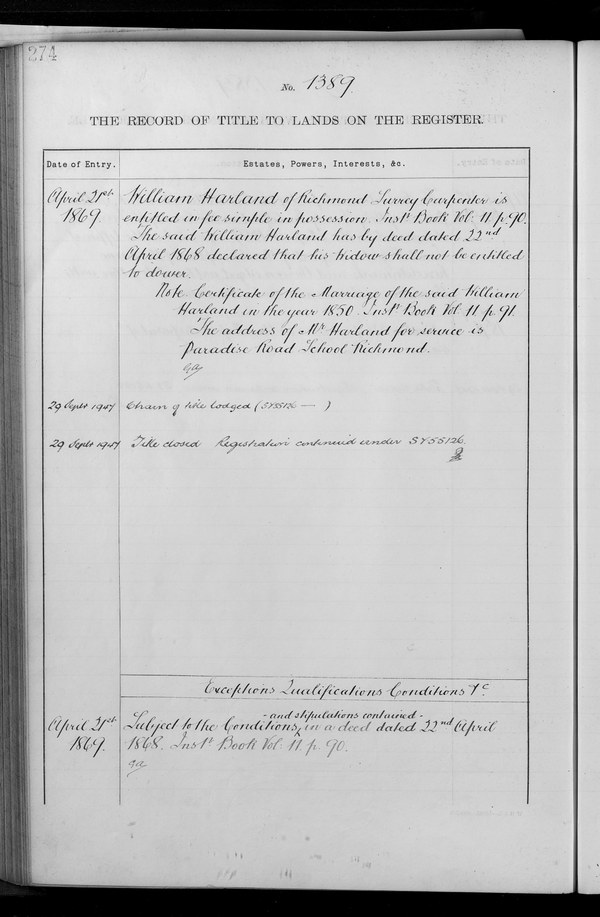 274
No. 1389
THE RECORD OF TITLE TO LANDS ON THE REGISTER.
Date of Entry. Estates, Powers, Interests, &c.
April 21st 1869
William Harland of Richmond Surrey Carpenter is
entitled in fee simple in possession. Inst Book Vol: 11 p 90.
The said William Harland has by deed dated 22nd
April 1868 declared that his widow shall not be entitled
to dower.
Note. Certificate of the Marriage of the said William
Harland in the year 1850. Inst Book Vol 11 p. 91.
The address of Mr Harland for service is
Paradise Road School Richmond.
29 Sept 1947 Chain of title lodged (SY55126 — )
29 Sept 1947 Title closed Registration continued under SY55126.
Exceptions Qualifications Conditions &c
April 21st 1869.
- and stipulations contained -
Subject to the Conditions in a deed dated 22nd April
1868. Inst Book Vol: 11 p. 90.